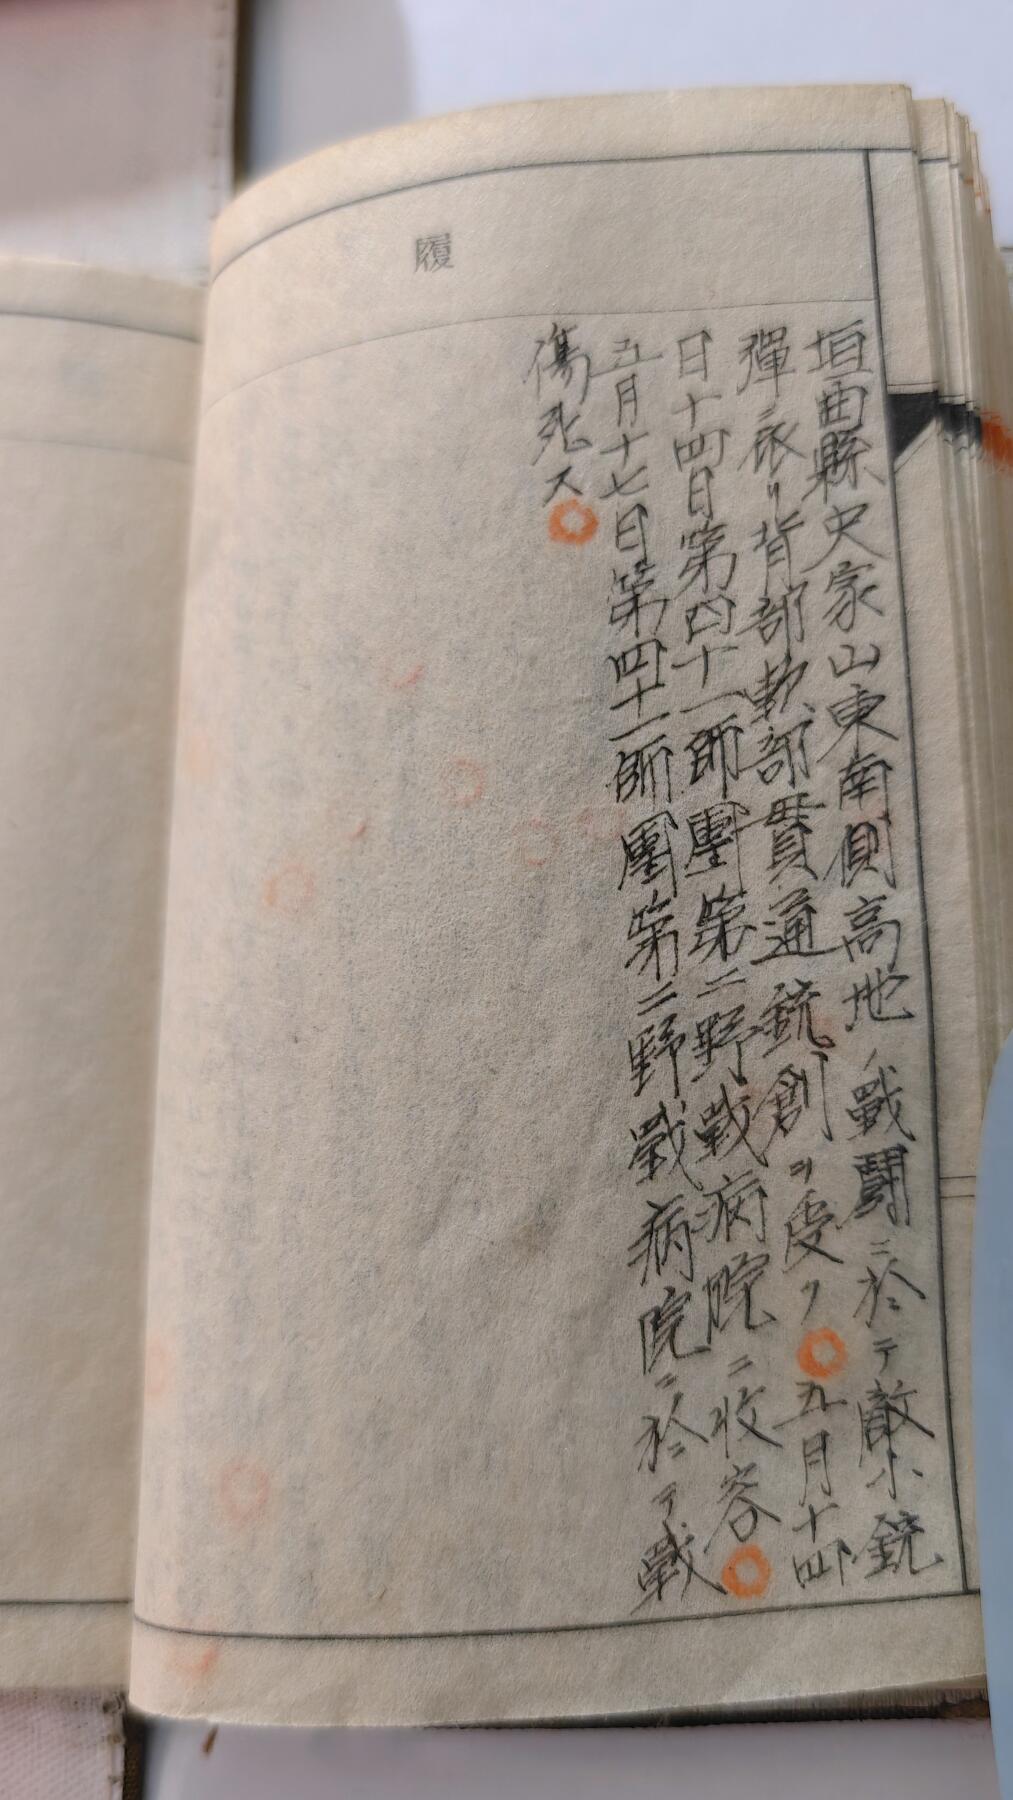 履
垣曲縣史家山東南側高地ノ戰鬪ニ於テ敵小銃
彈ニ依リ背部軟部貫通銃創ヲ受ク五月十四
日十四日第四十一師團第二野戰病院ニ收容
五月十七日第四十一師團第二野戰病院ニ於テ戰
傷死ス